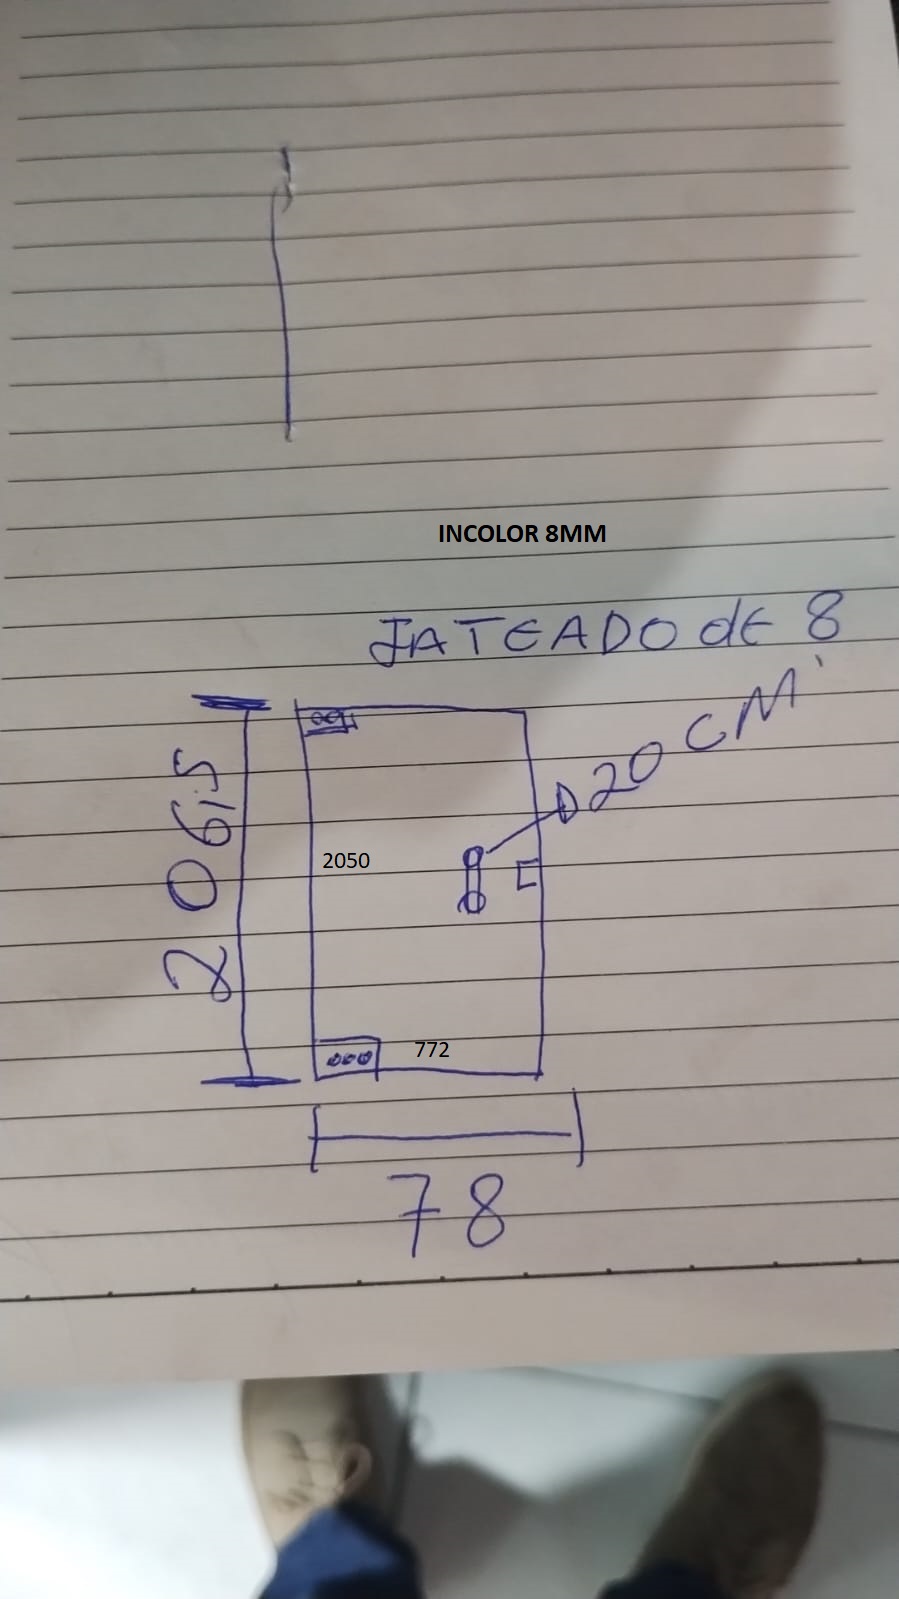 INCOLOR 8MM
JATEADO dE 8
20 CM
206,5
2050
772
78